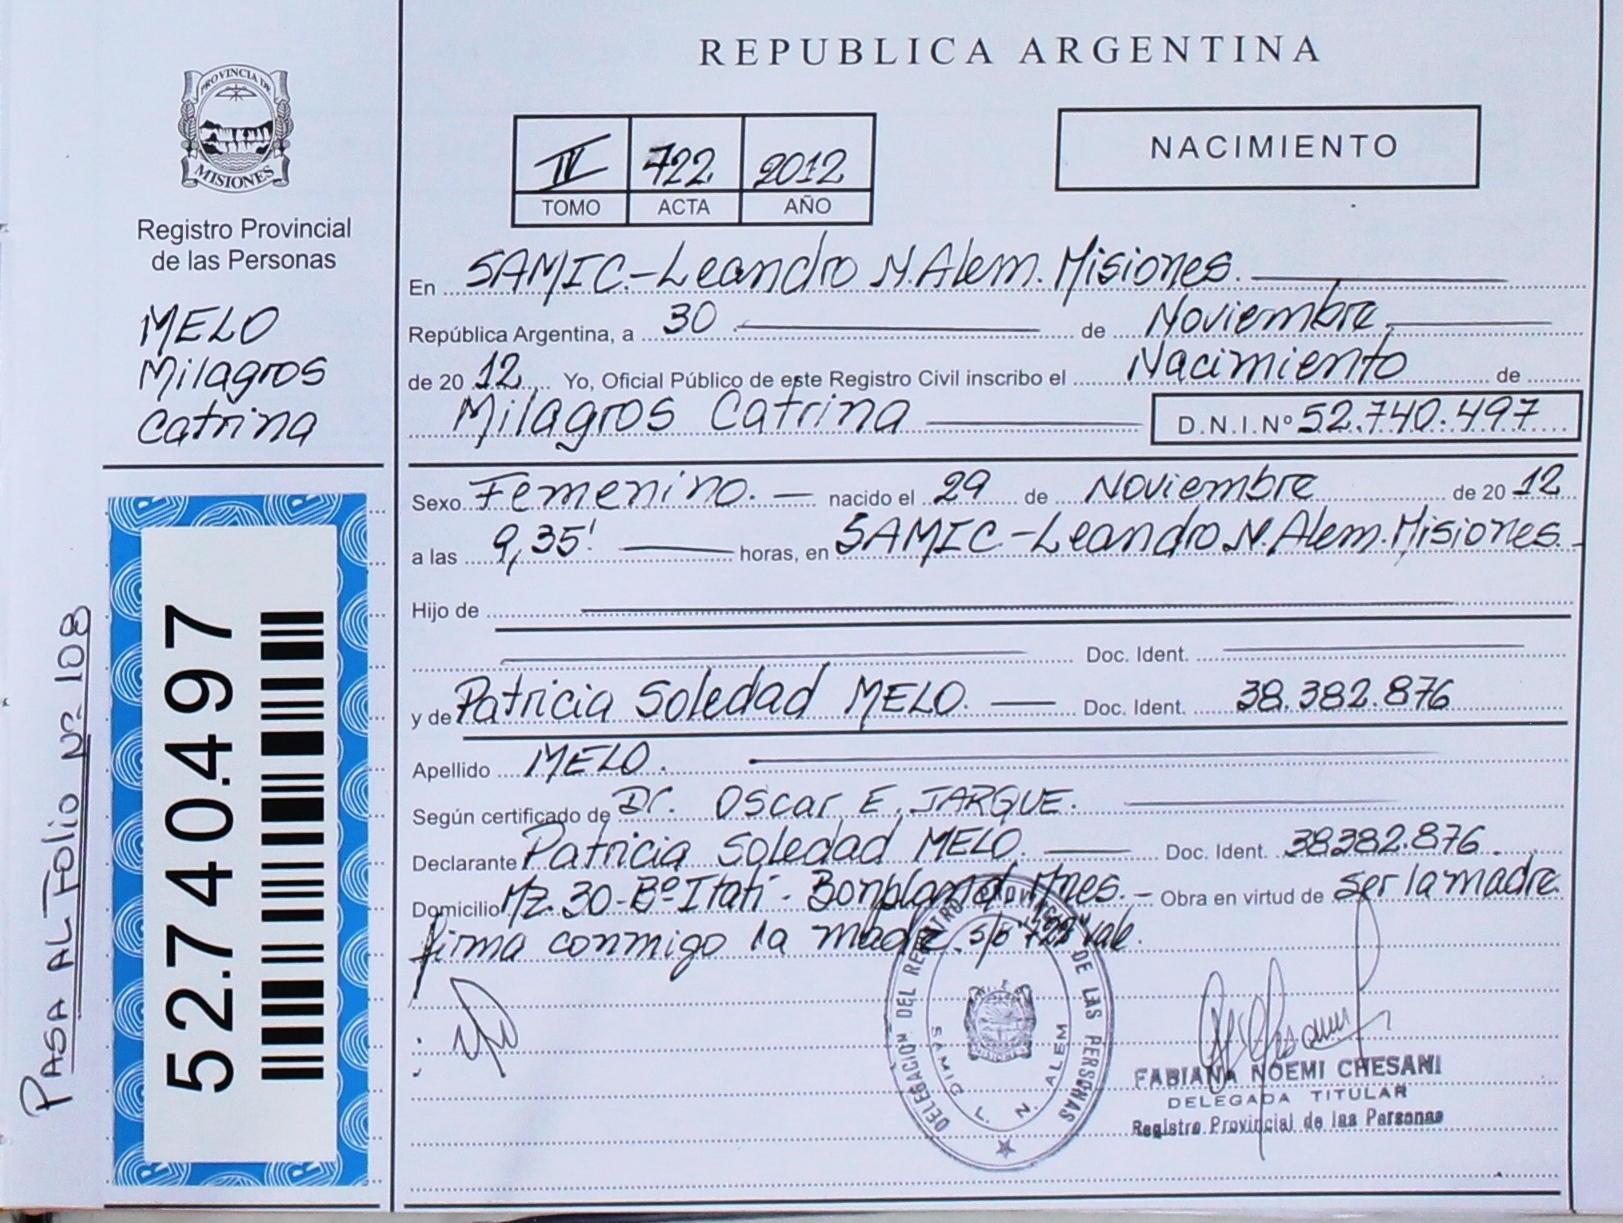 REPUBLICA ARGENTINA
PROVINCIA DE
MISIONES
Registro Provincial
de las Personas
MELO
Milagros
Catrina
52.740.497
PASA AL FOLIO Nº 108
IV 722 2012
TOMO ACTA AÑO
NACIMIENTO
En SAMIC.-Leandro N. Alem. Misiones.
República Argentina, a 30 de Noviembre
de 20 12 Yo, Oficial Público de este Registro Civil inscribo el Nacimiento de
Milagros Catrina D.N.I. Nº 52.740.497
Sexo Femenino. nacido el 29 de Noviembre de 20 12
a las 9,35' horas, en SAMIC.-Leandro N. Alem. Misiones.
Hijo de
Doc. Ident.
y de Patricia Soledad MELO. Doc. Ident. 38.382.876
Apellido MELO.
Según certificado de Dr. Oscar E. JARQUE.
Declarante Patricia Soledad MELO. Doc. Ident. 38382.876.
Domicilio Mz. 30-Bº Itatí - Bonpland, Mnes. - Obra en virtud de ser la madre
firma conmigo la madre. s/b "722" vale.
DELEGACION DEL REGISTRO PROVINCIAL DE LAS PERSONAS
SAMIC L. N. ALEM
FABIANA NOEMI CHESANI
DELEGADA TITULAR
Registro Provincial de las Personas